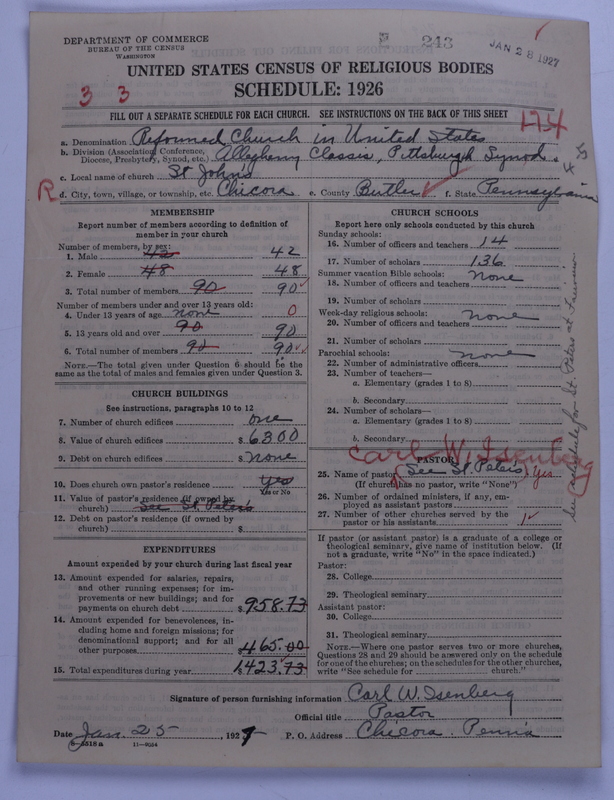 DEPARTMENT OF COMMERCE
BUREAU OF THE CENSUS
WASHINGTON
243
JAN 28 1927
UNITED STATES CENSUS OF RELIGIOUS BODIES
SCHEDULE: 1926
3 3
FILL OUT A SEPARATE SCHEDULE FOR EACH CHURCH. SEE INSTRUCTIONS ON THE BACK OF THIS SHEET
a. Denomination Reformed Church in United States
b. Division (Association, Conference,
Diocese, Presbytery, Synod, etc.) Allegheny Classis, Pittsburgh Synod.
c. Local name of church St John's
R d. City, town, village, or township, etc. Chicora e. County Butler f. State Pennsylvania
MEMBERSHIP
Report number of members according to definition of
member in your church
Number of members, by sex:
1. Male 42 42
2. Female 48 48
3. Total number of members 90 90
Number of members under and over 13 years old:
4. Under 13 years of age none 0
5. 13 years old and over 90 90
6. Total number of members 90 90
NOTE.—The total given under Question 6 should be the
same as the total of males and females given under Question 3.
CHURCH BUILDINGS
See instructions, paragraphs 10 to 12
7. Number of church edifices one
8. Value of church edifices $6300
9. Debt on church edifices $None
10. Does church own pastor's residence yes
Yes or No
11. Value of pastor's residence (if owned by
church) See St. Peter's
12. Debt on pastor's residence (if owned by
church) $
EXPENDITURES
Amount expended by your church during last fiscal year
13. Amount expended for salaries, repairs,
and other running expenses; for im-
provements or new buildings; and for
payments on church debt $958.73
14. Amount expended for benevolences, in-
cluding home and foreign missions; for
denominational support; and for all
other purposes 465.00
15. Total expenditures during year $1423.73
CHURCH SCHOOLS
Report here only schools conducted by this church
Sunday schools:
16. Number of officers and teachers 14
17. Number of scholars 136
Summer vacation Bible schools: None
18. Number of officers and teachers
19. Number of scholars
Week-day religious schools: none
20. Number of officers and teachers
21. Number of scholars
Parochial schools: none
22. Number of administrative officers
23. Number of teachers—
a. Elementary (grades 1 to 8)
b. Secondary
24. Number of scholars—
a. Elementary (grades 1 to 8)
b. Secondary
Carl W. Isenberg
PASTOR
25. Name of pastor (See St. Peter's) Yes
(If church has no pastor, write "None")
26. Number of ordained ministers, if any, em-
ployed as assistant pastors
27. Number of other churches served by the
pastor or his assistants 1
If pastor (or assistant pastor) is a graduate of a college or
theological seminary, give name of institution below. (If
not a graduate, write "No" in the space indicated.)
Pastor:
28. College
29. Theological seminary
Assistant pastor:
30. College
31. Theological seminary
NOTE.—Where one pastor serves two or more churches,
Questions 28 and 29 should be answered only on the schedule
for one of the churches; on the schedules for the other churches,
write "See schedule for church."
Signature of person furnishing information Carl W. Isenberg
Official title Pastor
Date Jan. 25, 1927 P. O. Address Chicora Penn'a
8-5518a 11-9054